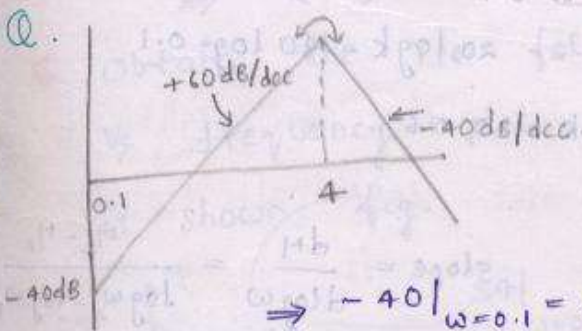 Q.
+60dB/dec
-40dB/dec
0.1
4
-40dB
⇒ -40|ω=0.1 =